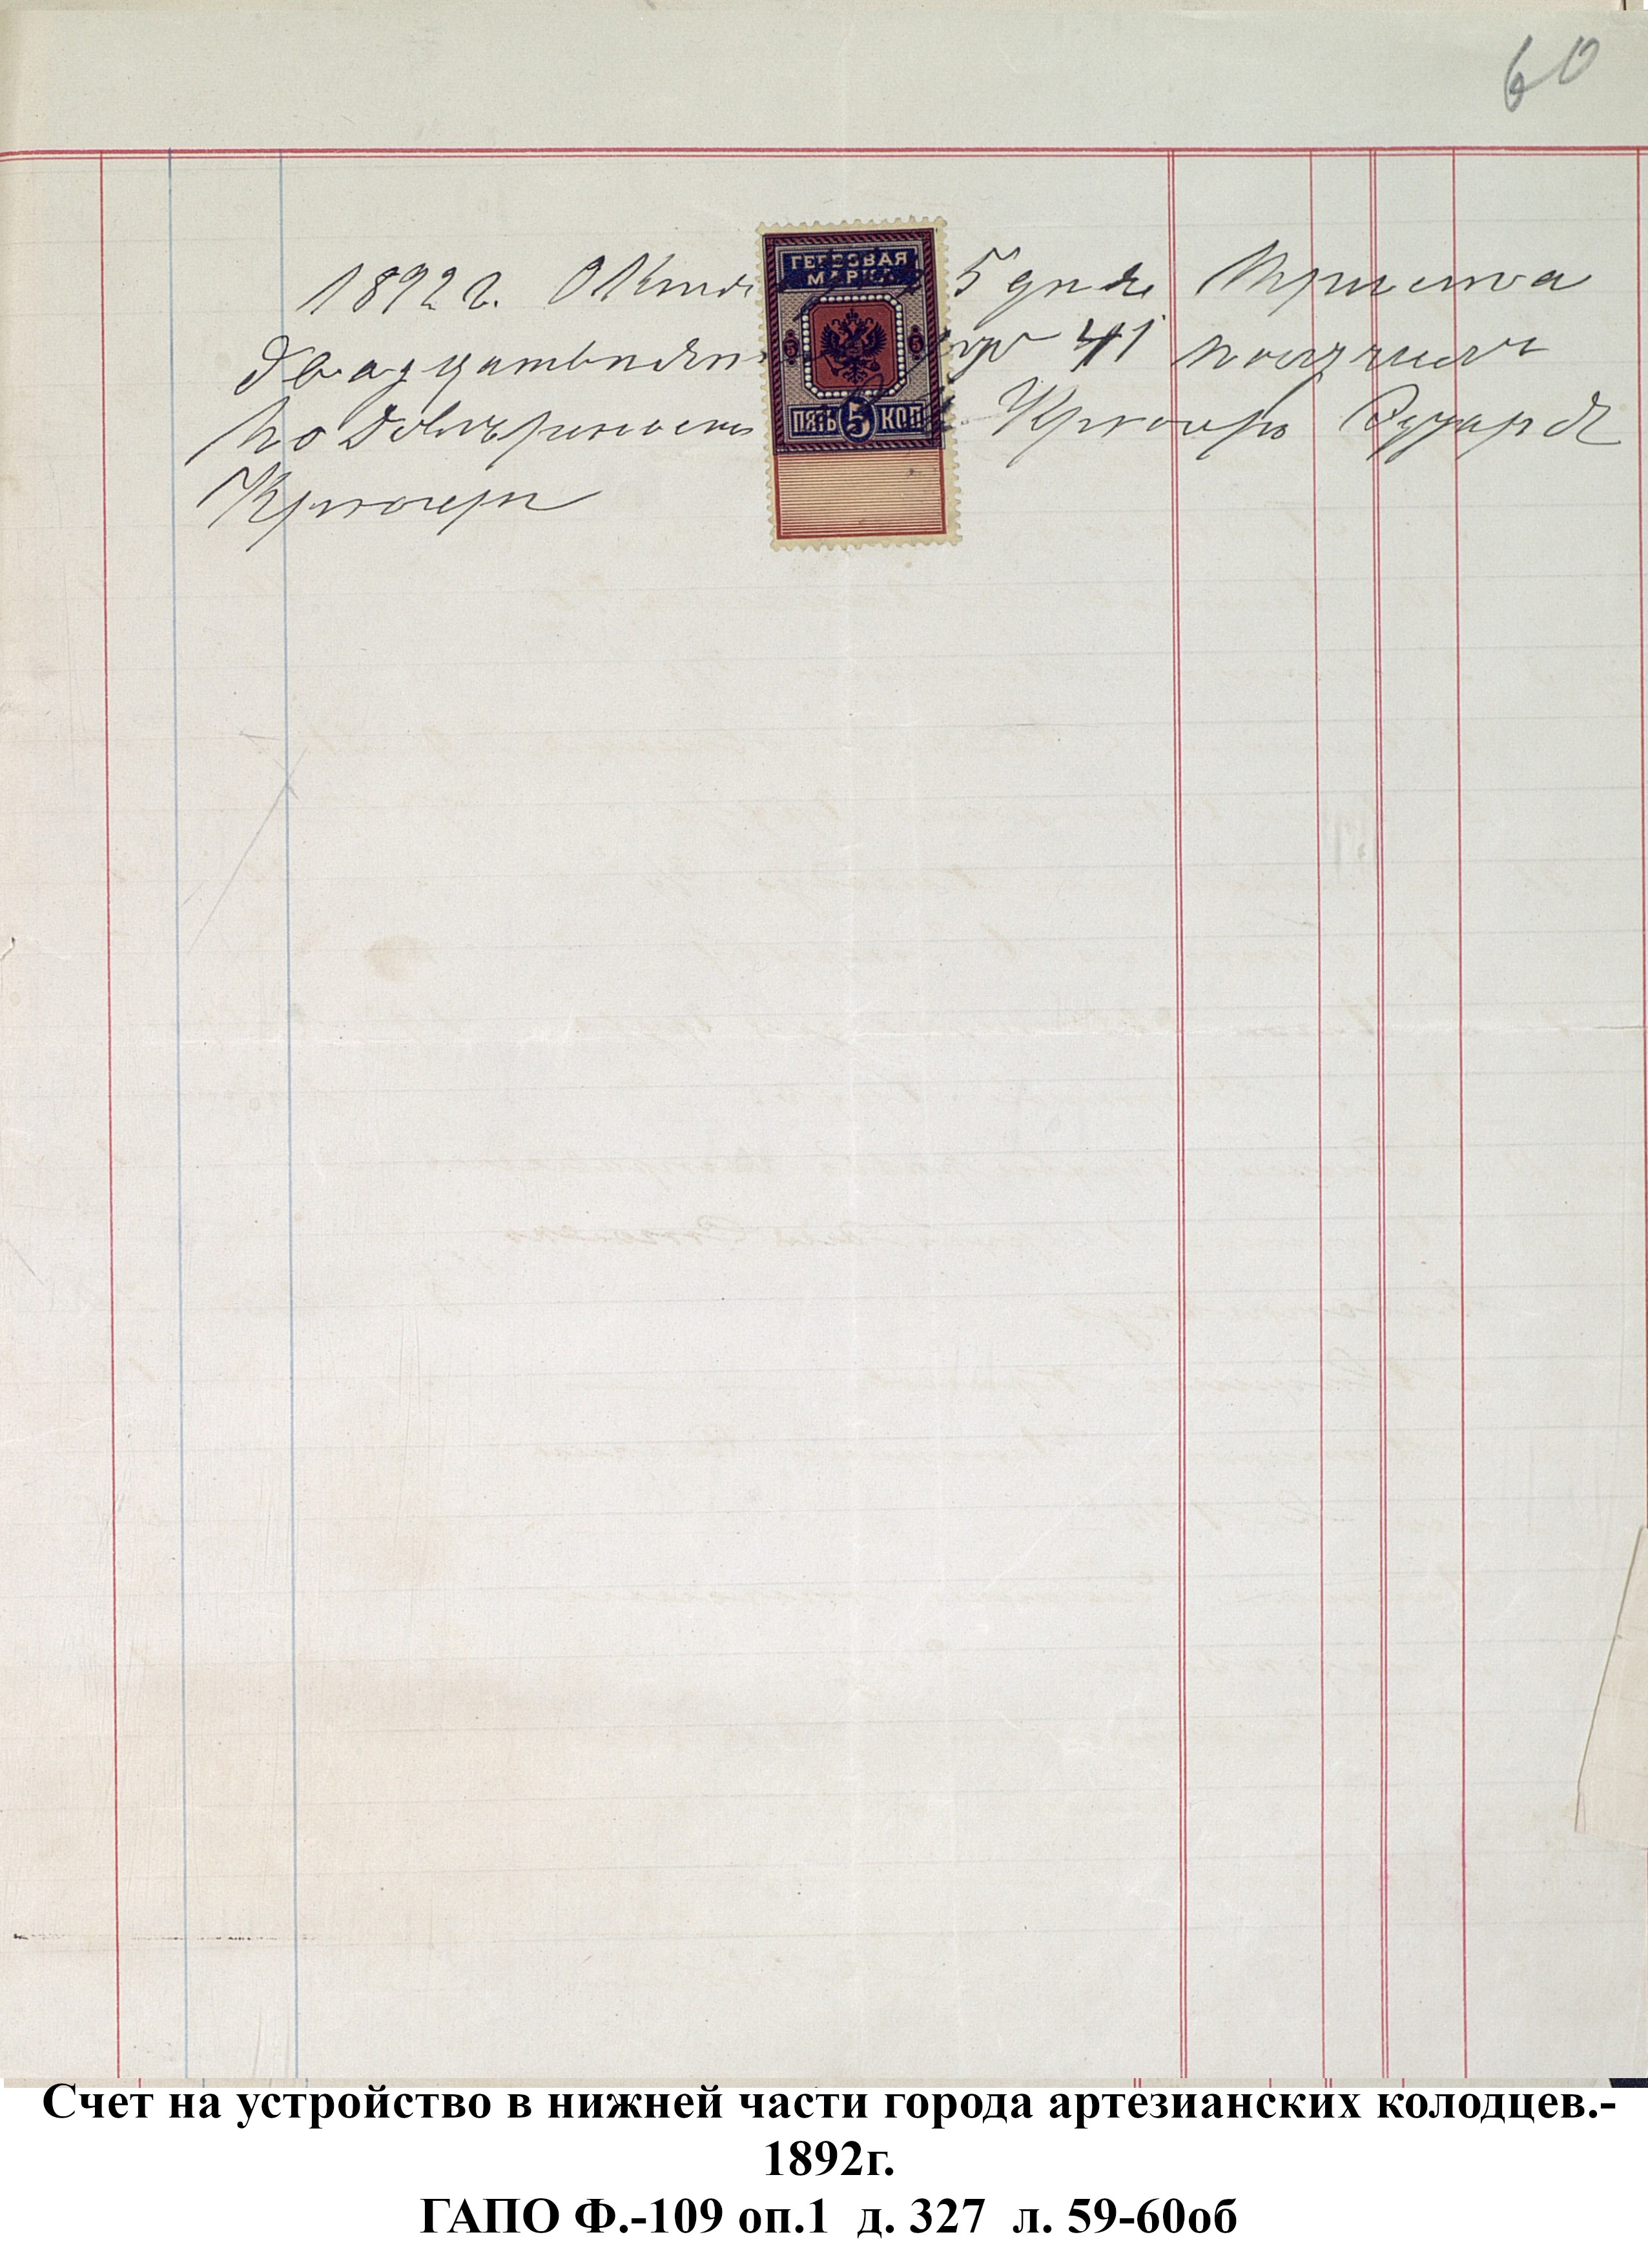 60
1892 г. Октя 5 дня Триста
двадцатьпять руб 41 получилъ
по Довѣренности Крюгеръ Эдуардъ
Крюгеръ
ГЕРБОВАЯ
МАРКА
5 5
ПЯТЬ 5 КОП
Счет на устройство в нижней части города артезианских колодцев.-
1892г.
ГАПО Ф.-109 оп.1 д. 327 л. 59-60об